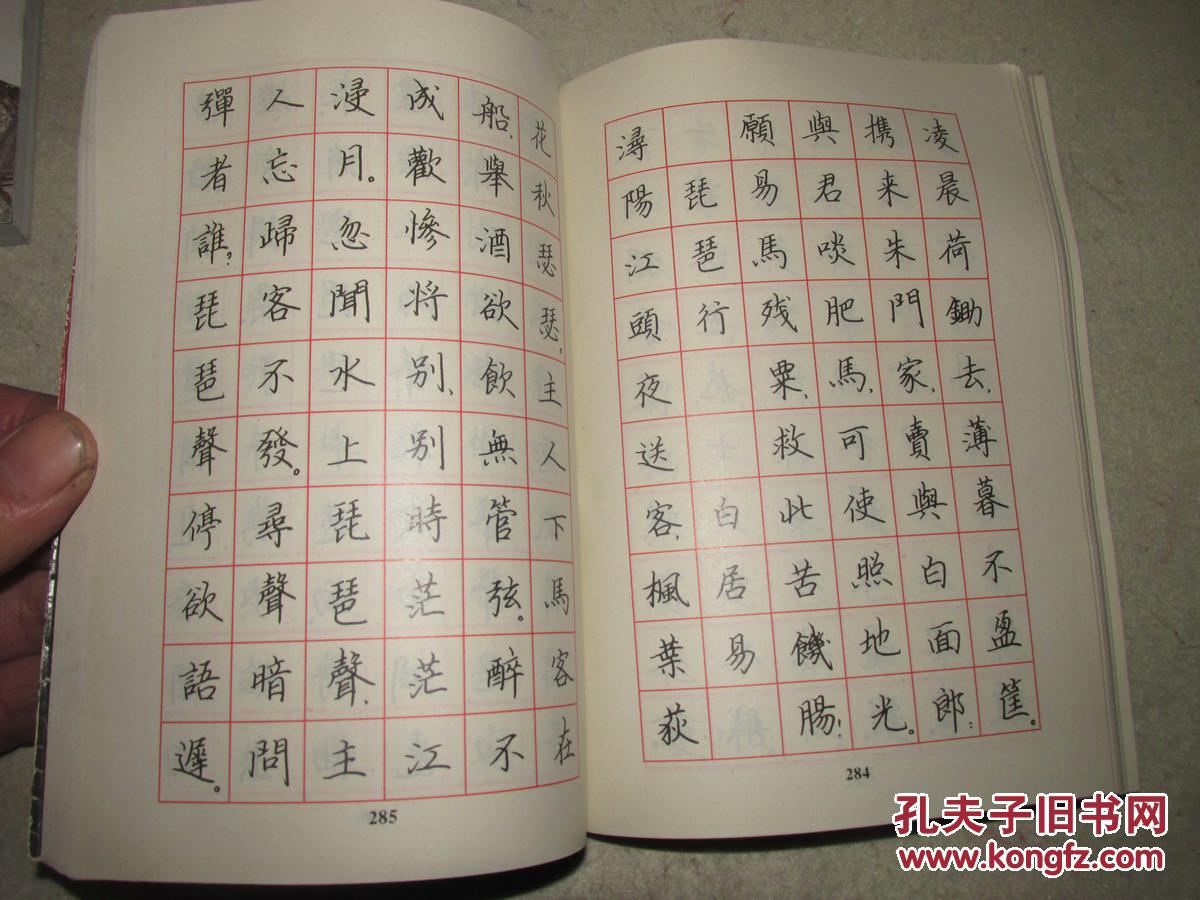 凌晨荷鋤去，薄暮不盈筐。
携来朱門家，賣與白面郎：
與君啖肥馬，可使照地光。
願易馬残粟，救此苦饑腸！
琵琶行 白居易
潯陽江頭夜送客，楓葉荻
284
花秋瑟瑟。主人下馬客在
船，舉酒欲飲無管弦。醉不
成歡慘將别，别時茫茫江
浸月。忽聞水上琵琶聲，主
人忘歸客不發。尋聲暗問
彈者誰？琵琶聲停欲語遲。
285
孔夫子旧书网
www.kongfz.com